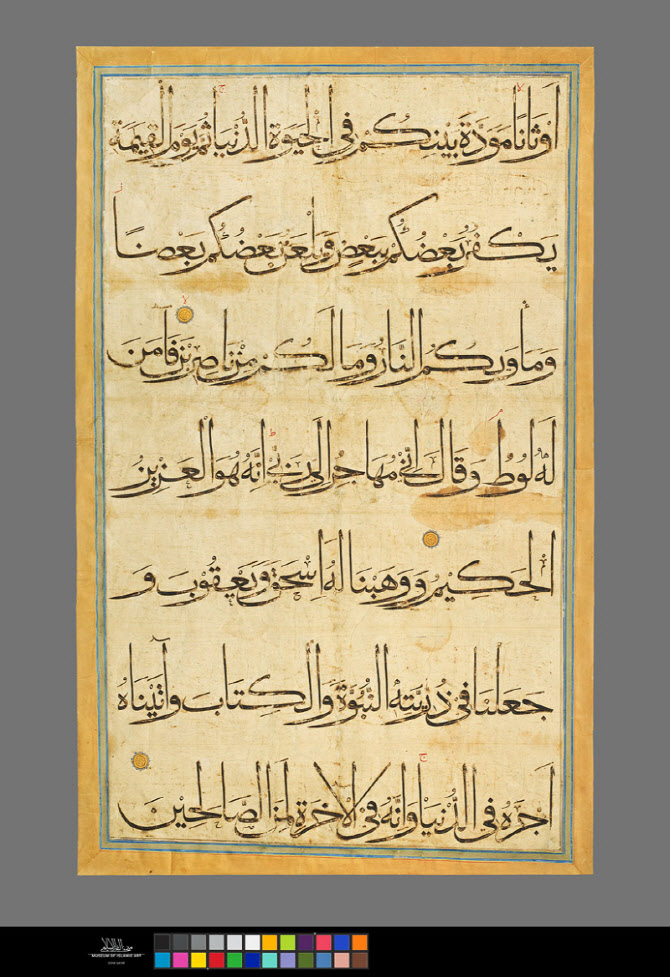 أَوْثَانًا مَوَدَّةَ بَيْنِكُمْ فِي الْحَيَوةِ الدُّنْيَا ثُمَّ يَوْمَ الْقِيمَةِ
يَكْفُرُ بَعْضُكُمْ بِبَعْضٍ وَيَلْعَنُ بَعْضُكُمْ بَعْضًا
وَمَأْوَيكُمُ النَّارُ وَمَا لَكُمْ مِنْ نَاصِرِينَ فَآمَنَ
لَهُ لُوطٌ وَقَالَ إِنِّي مُهَاجِرٌ إِلَى رَبِّي إِنَّهُ هُوَ الْعَزِيزُ
الْحَكِيمُ وَوَهَبْنَا لَهُ إِسْحَقَ وَيَعْقُوبَ وَ
جَعَلْنَا فِي ذُرِّيَّتِهِ النُّبُوَّةَ وَالْكِتَابَ وَآتَيْنَاهُ
أَجْرَهُ فِي الدُّنْيَا وَإِنَّهُ فِي الْآخِرَةِ لَمِنَ الصَّالِحِينَ
MUSEUM OF ISLAMIC ART